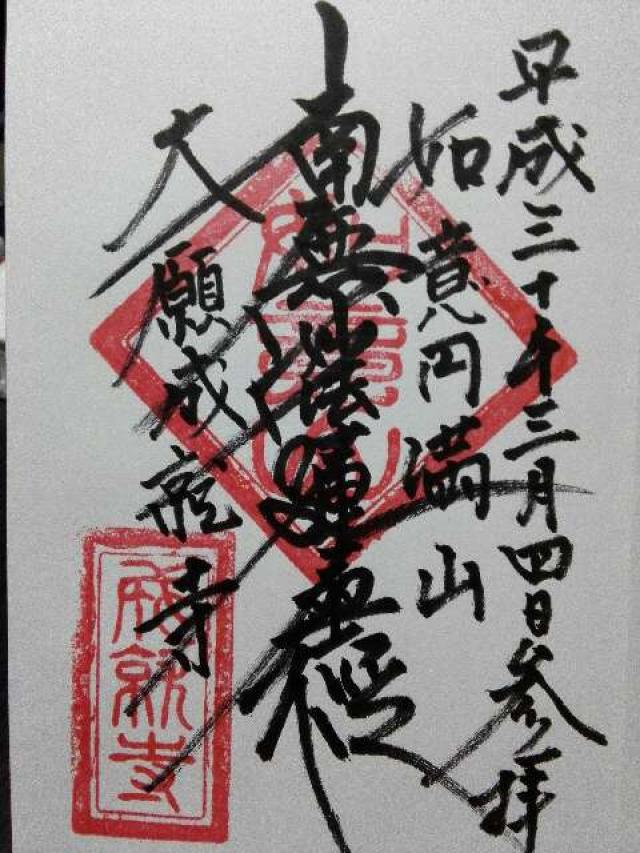 平成三十年三月四日参拝
如意円満山
南無妙法蓮華経
大願成就寺
成就寺